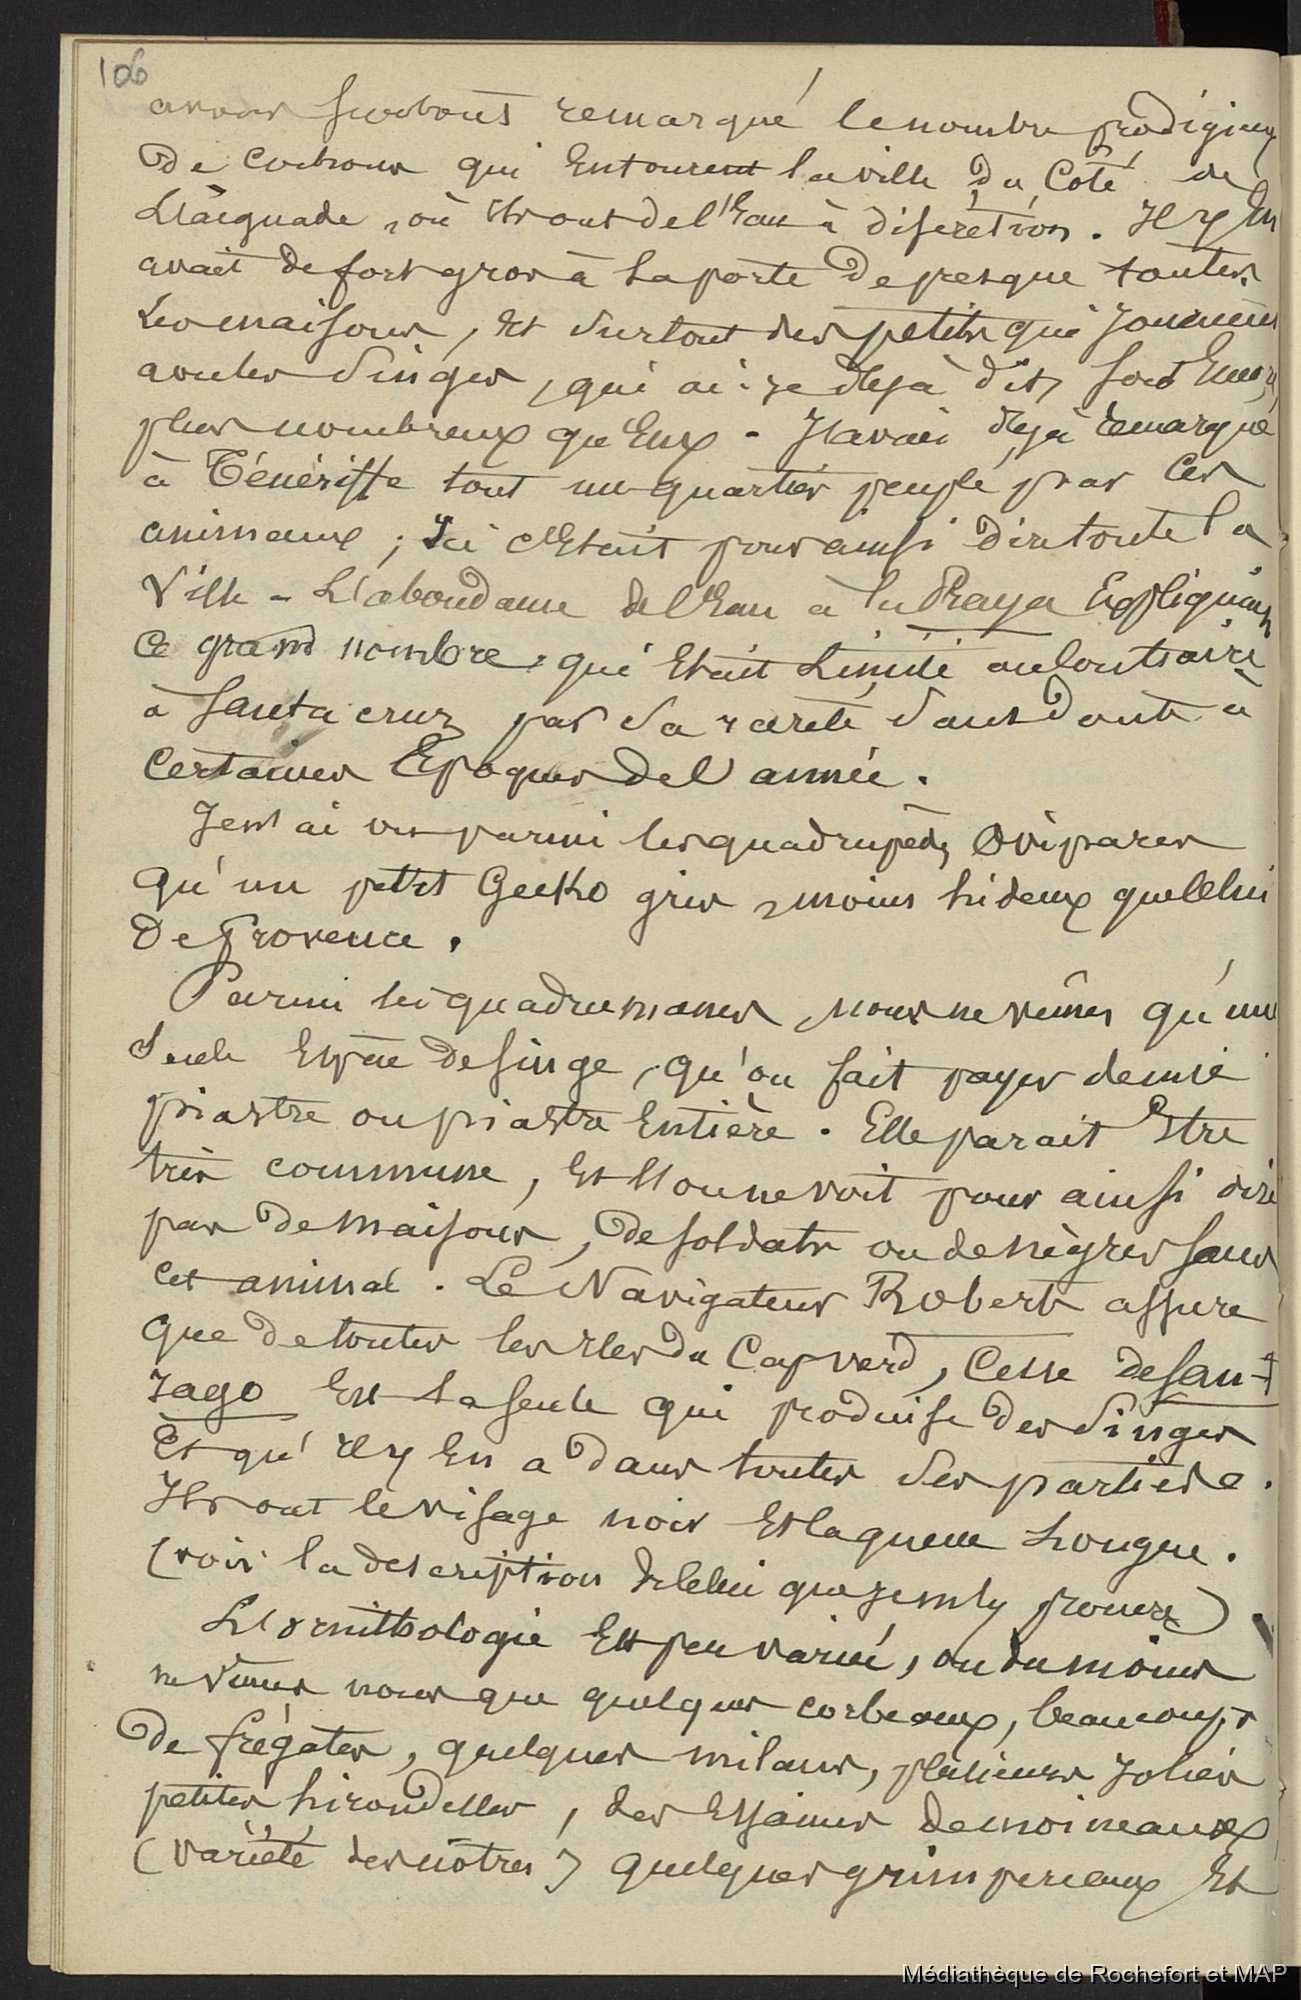 106
avoir surtout remarqué le nombre prodigieux
de cochons qui Entourent la ville du Coté de
L'aiguade, où ils ont de l'Eau à discrétion. Il y En
avait de fort gros à la porte de presque toutes
Les maisons, Et surtout des petits qui jouaient
avec les singes, qui ai-je déjà dit, sont
plus nombreux qu'Eux - J'avais déjà remarqué
à Ténériffe tout un quartier peuplé par ces
animaux ; Ici c'Etait pour ainsi dire toute la
Ville - L'abondance de l'Eau à la Praya Expliquait
Ce grand nombre, qui Etait Limité au contraire
à Santa cruz par sa rareté sans doute à
Certaines Epoques de l'année.
Je n'ai vu parmi les quadrupèdes Ovipares
Qu'un petit Gecko gris, moins hideux que celui
De Provence.
Parmi les quadrumanes, nous ne vîmes qu'une
Seule Espèce de singe, qu'on fait payer demie
piastre ou piastre Entière. Elle parait Etre
très commune, Et l'on ne voit pour ainsi dire
pas de maisons, de soldats ou de nègres sans
cet animal. Le Navigateur Roberts assure
Que de toutes les Iles du Cap verd, Celle de San-
Jago Est La seule qui produise des singes
Et qu'il y En a dans toutes ses parties.
Ils ont le visage noir Et la queue Longue.
(voir la description de celui que je
L'ornithologie Est peu variée, ou du moins
ne vîmes nous que quelques corbeaux, beaucoup
De frégates, quelques milans, plusieurs jolies
petites hirondelles, des Essaims de moineaux
(Variété des nôtres) quelques grimpereaux Et
Médiathèque de Rochefort et MAP